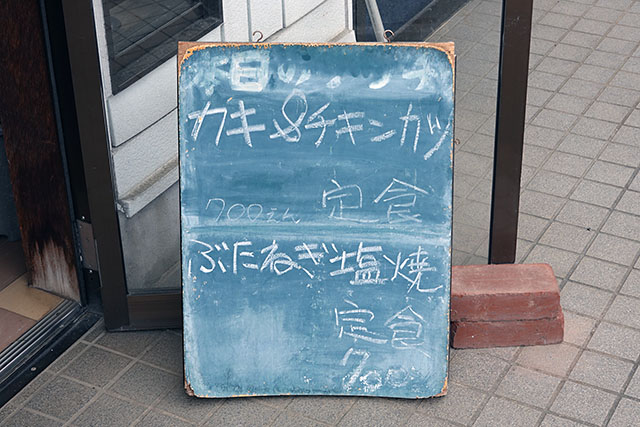 本日のランチ
ガキ&チキンカツ
700えん 定食
ぶたねぎ塩焼
定食
700